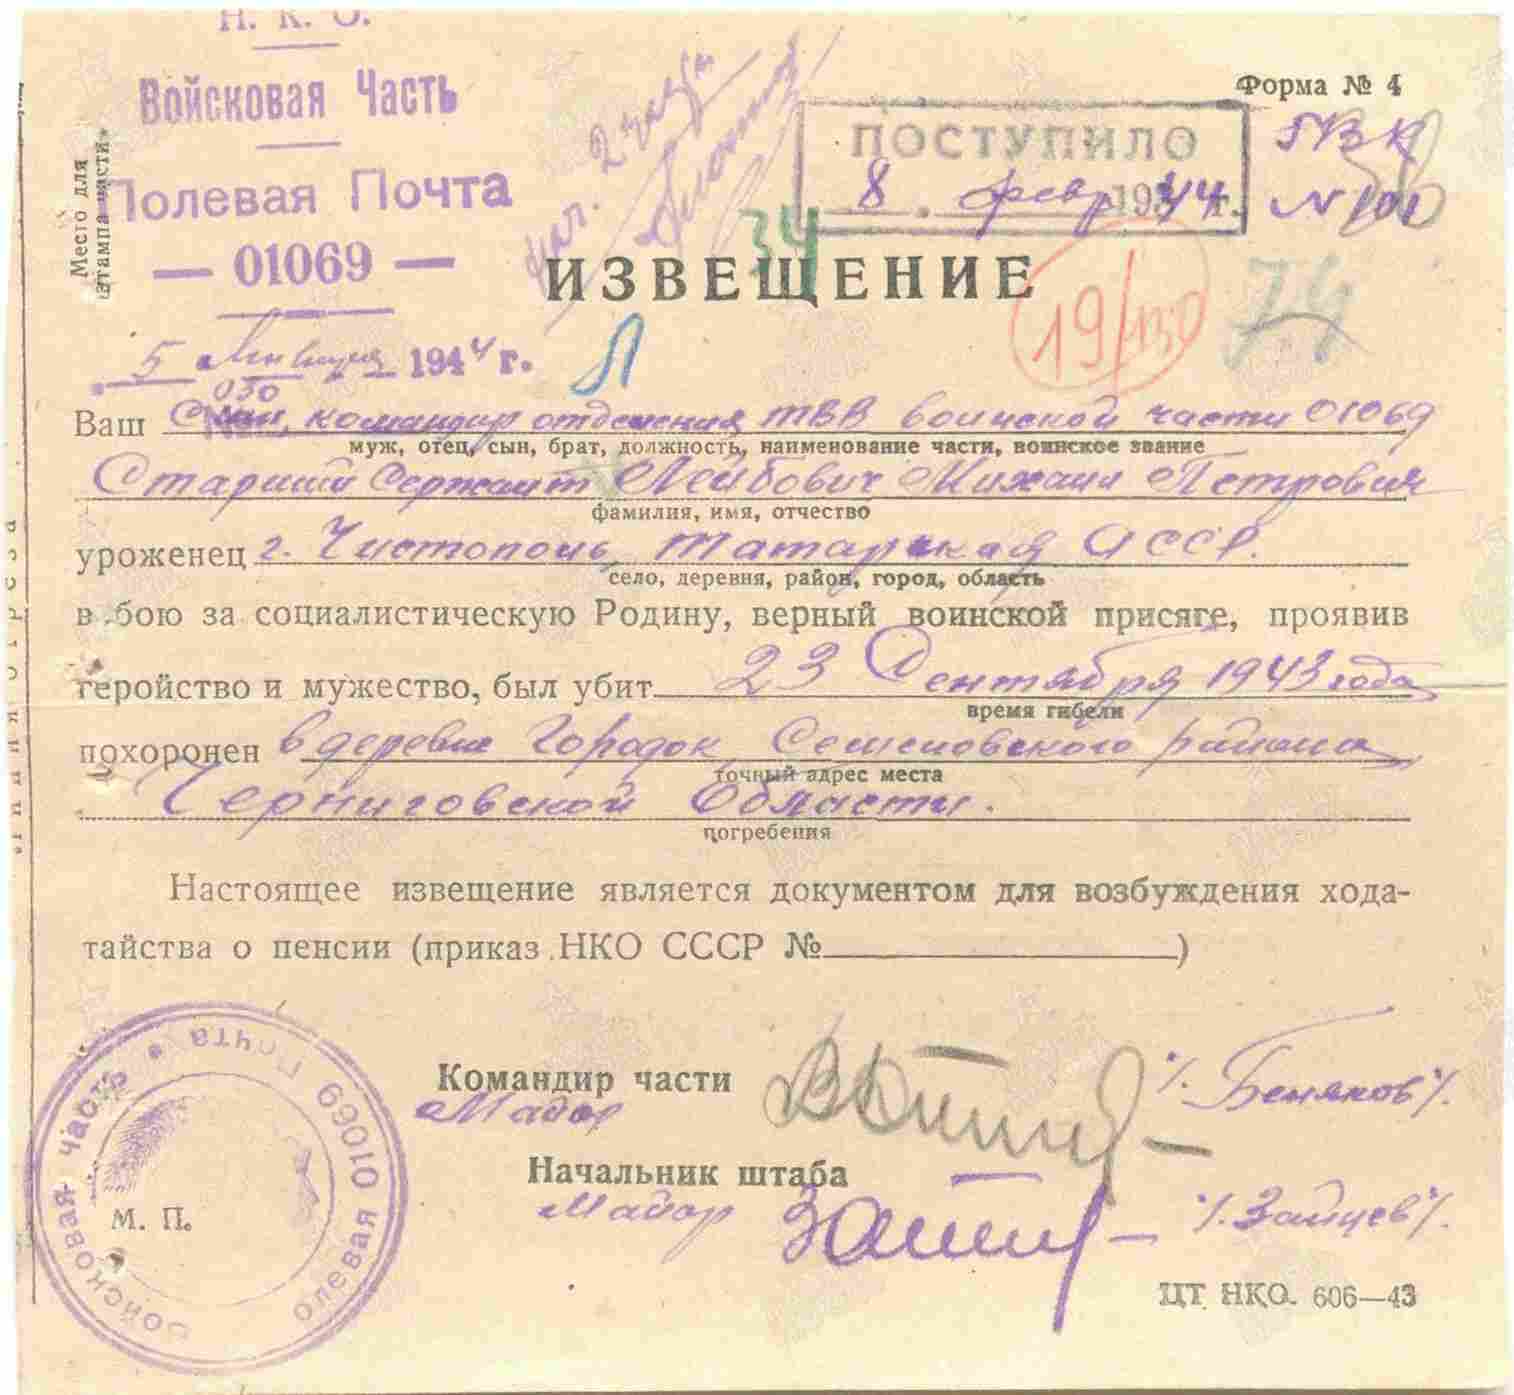 Н. К. О.
Войсковая Часть
Полевая Почта
— 01069 —
Место для
штампа части»
Форма № 4
ПОСТУПИЛО
8 февр 1944 г.
ГВК
N 101
34
ИЗВЕЩЕНИЕ
19/130
74
5 Января 1944 г.
№ 030
Л
Ваш Сын, командир отделения ТВВ воинской части 01069
муж, отец, сын, брат, должность, наименование части, воинское звание
Старший Сержант Лейбович Михаил Петрович
фамилия, имя, отчество
уроженец г. Чистополь, Татарская АССР.
село, деревня, район, город, область
в бою за социалистическую Родину, верный воинской присяге, проявив
геройство и мужество, был убит 23 Сентября 1943 года
время гибели
похоронен в деревне Городок Семеновского района
точный адрес места
Черниговской Области.
погребения
Настоящее извещение является документом для возбуждения хода-
тайства о пенсии (приказ НКО СССР № )
Командир части
Майор /. Беняков /.
Начальник штаба
Майор /. Зайцев /.
М. П.
Войсковая часть • Полевая Почта 01069
ЦТ НКО. 606—43
Линия отреза